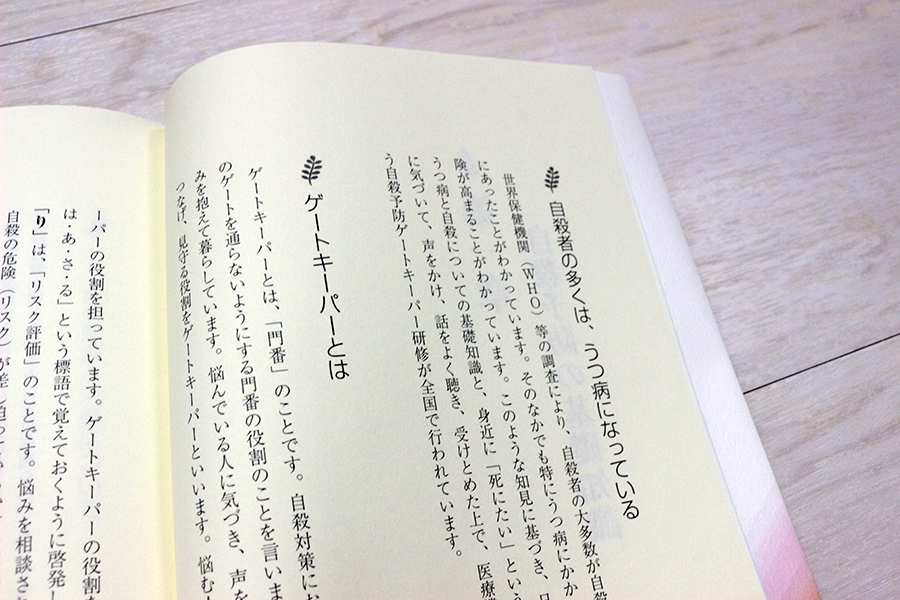 自殺者の多くは、うつ病になっている
世界保健機関（WHO）等の調査により、自殺者の大多数が自殺
にあったことがわかっています。そのなかでも特にうつ病にかか
険が高まることがわかっています。このような知見に基づき、日
うつ病と自殺についての基礎知識と、身近に「死にたい」という
に気づいて、声をかけ、話をよく聴き、受けとめた上で、医療
う自殺予防ゲートキーパー研修が全国で行われています。
ゲートキーパーとは
ゲートキーパーとは、「門番」のことです。自殺対策にお
のゲートを通らないようにする門番の役割のことを言いま
みを抱えて暮らしています。悩んでいる人に気づき、声を
つなげ、見守る役割をゲートキーパーといいます。悩む
ーパーの役割を担っています。ゲートキーパーの役割を
は・あ・さ・る」という標語で覚えておくように啓発し
「り」は、「リスク評価」のことです。悩みを相談され
自殺の危険（リスク）が差し迫ってい